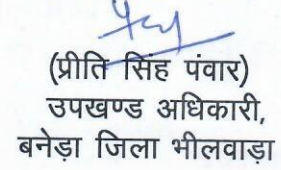 (प्रीति सिंह पंवार)
उपखण्ड अधिकारी,
बनेड़ा जिला भीलवाड़ा